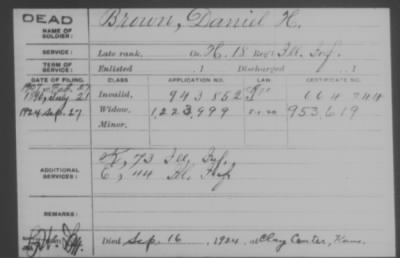 DEAD
NAME OF SOLDIER:
Brown, Daniel H.
SERVICE:
Late rank, Co. H. 18 Reg't Ill. Inf.
TERM OF SERVICE:
Enlisted , 1 Discharged , 1
DATE OF FILING. CLASS APPLICATION NO. LAW CERTIFICATE NO.
1907 Feb. 27
July 21 Invalid, 943 852
1924 Sep. 27 Widow, 1,223,999 953,619
Minor,
ADDITIONAL SERVICES:
K, 73 Ill. Inf.,
E, 44 Ill. Inf
REMARKS:
Died Sep. 16, 1924, at Clay Center, Kans.